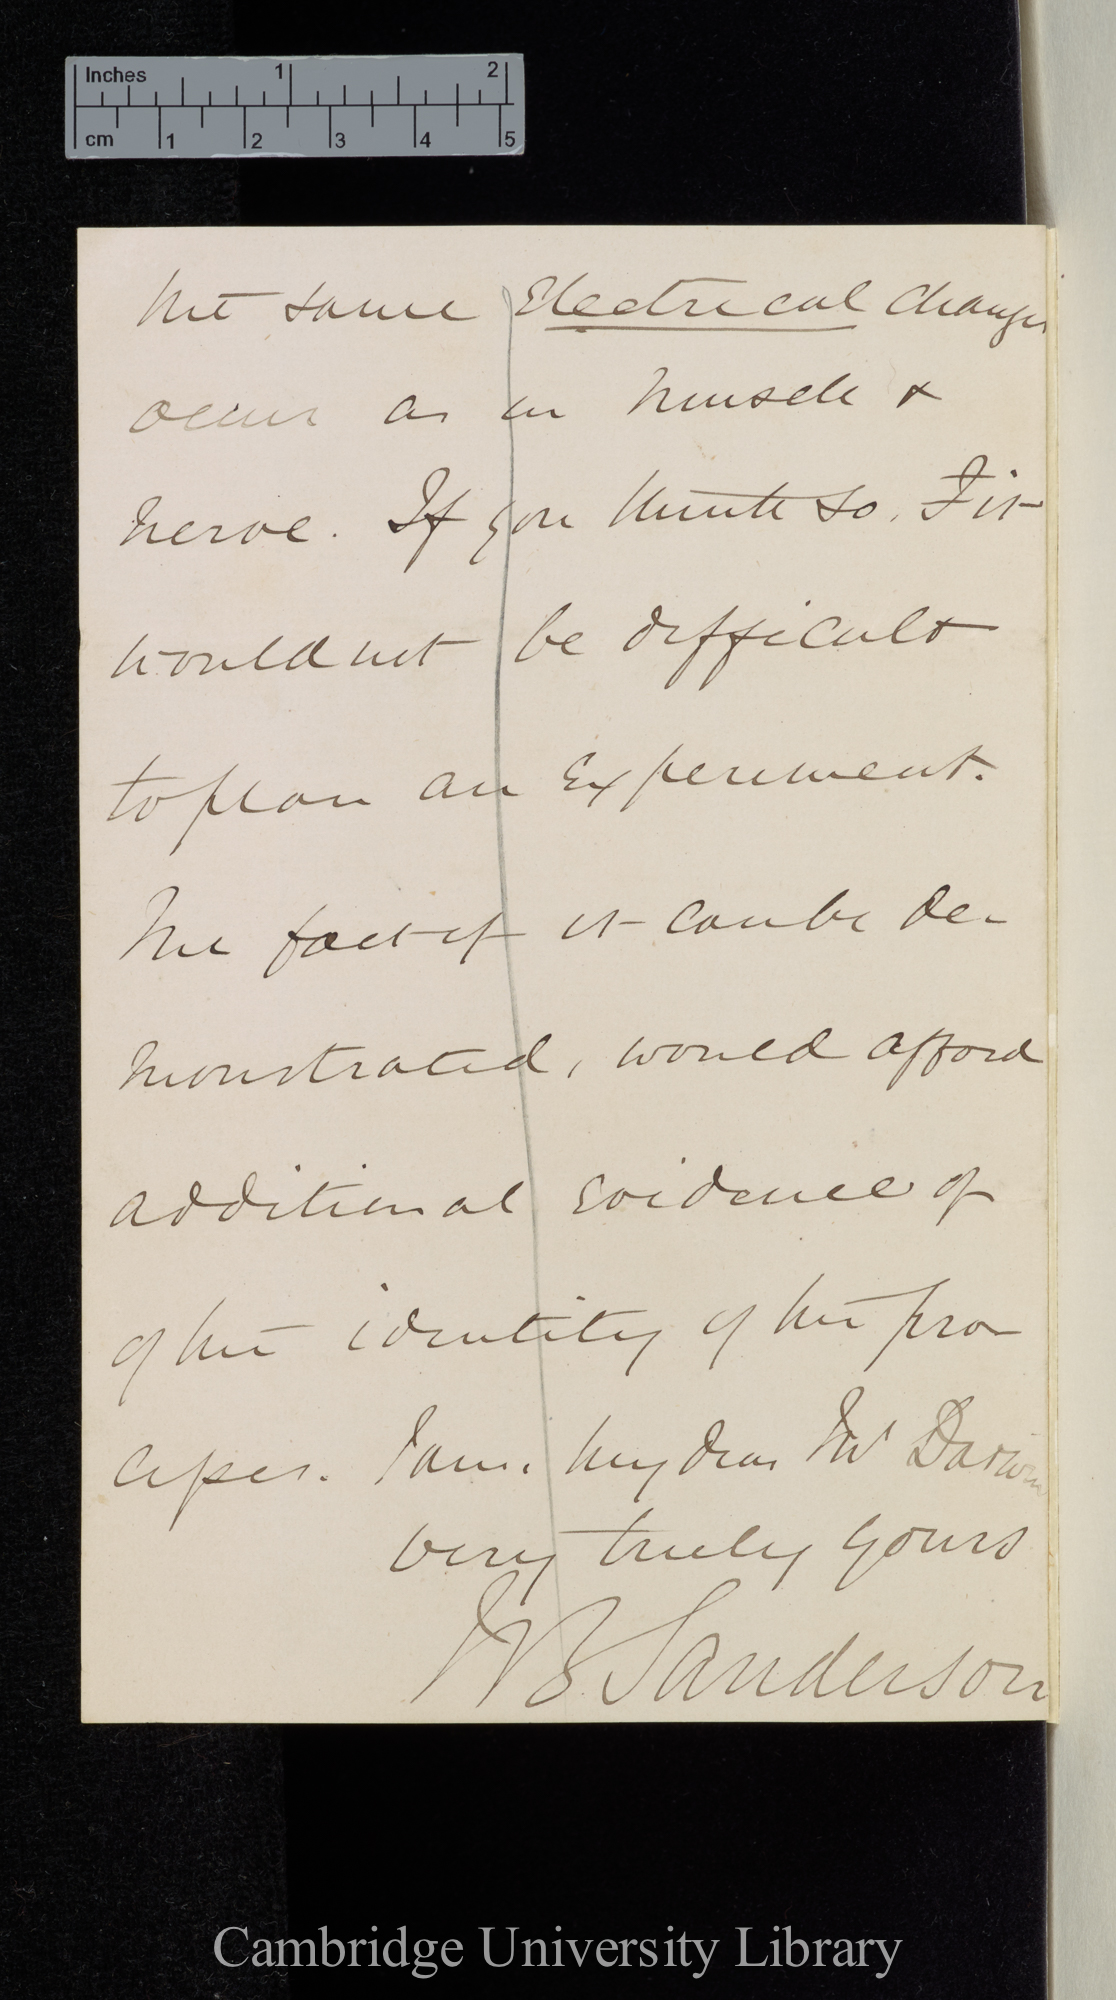 Inches 1 2
cm 1 2 3 4 5
the same Electrical changes
occur as in muscle &
nerve. If you think so, I it
would not be difficult
to plan an Experiment.
The fact if it can be de-
monstrated, would afford
additional evidence of
of the identity of the pro-
cesses. I am, my dear Mr Darwin
very truly yours
JB Sanderson
Cambridge University Library